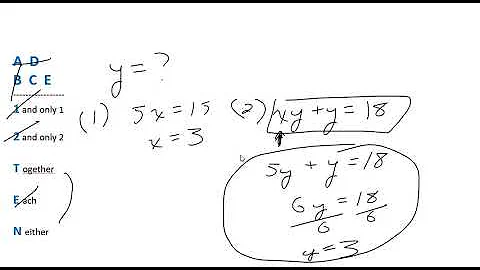 A D
B C E
1 and only 1
2 and only 2
T ogether
E ach
N either
y = ?
(1) 5x = 15
x = 3
(2) xy + y = 18
5y + y = 18
6y = 18
6 6
y = 3